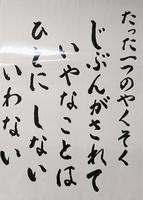 たった一つのやくそく
じぶんがされて
いやなことは
ひとにしない
いわない